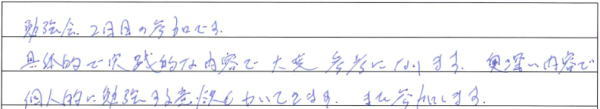 勉強会、2回目の参加です。
具体的で実践的な内容で大変参考になります。奥深い内容で
個人的に勉強する意欲もわいてきます。また参加します。